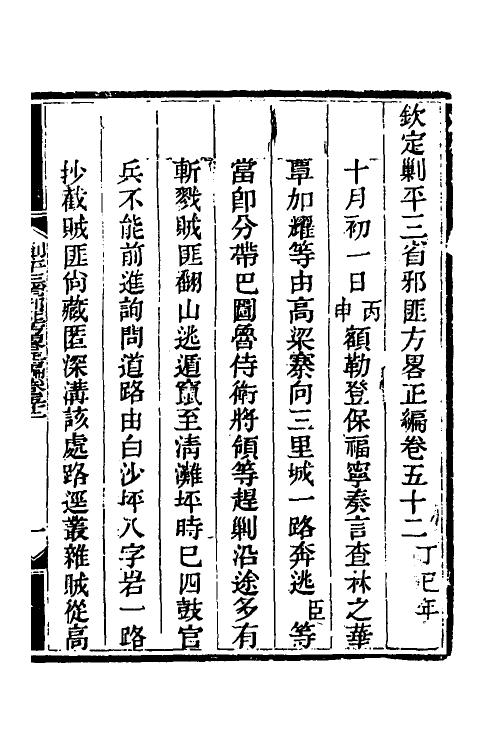 欽定剿平三省邪匪方畧正編卷五十二丁巳年
十月初一日丙申額勒登保福寧奏言查林之華
覃加耀等由高梁寨向三里城一路奔逃臣等
當卽分帶巴圖魯侍衛將領等趕剿沿途多有
斬戮賊匪翻山逃遁竄至淸灘坪時已四鼓官
兵不能前進詢問道路由白沙坪八字岩一路
抄截賊匪尙藏匿深溝該處路逕叢雜賊從高